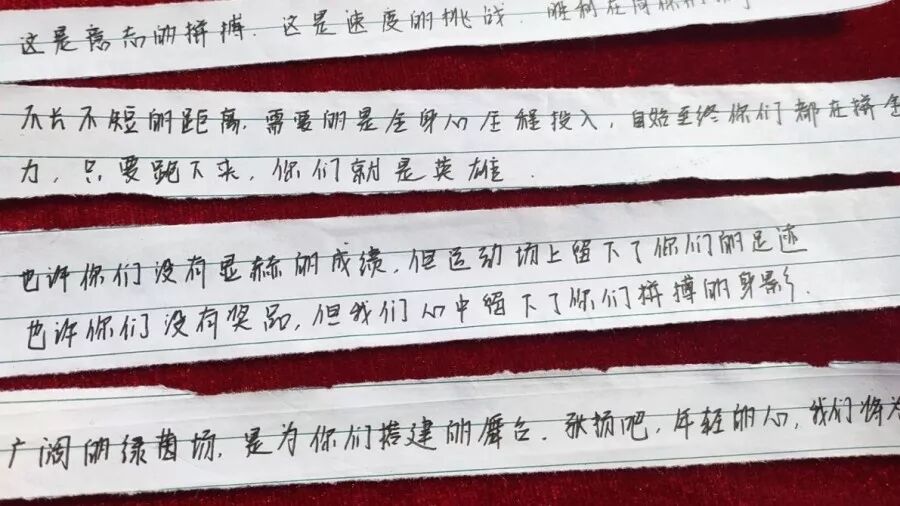 这是意志的拼搏．这是速度的挑战．胜利在向你们
不长不短的距离．需要的是全身心全程投入，自始至终你们都在拼全
力，只要跑下来，你们就是英雄．
也许你们没有显赫的成绩，但运动场上留下了你们的足迹
也许你们没有奖品，但我们心中留下了你们拼搏的身影．
广阔的绿茵场，是为你们搭建的舞台．张扬吧，年轻的心，我们将为